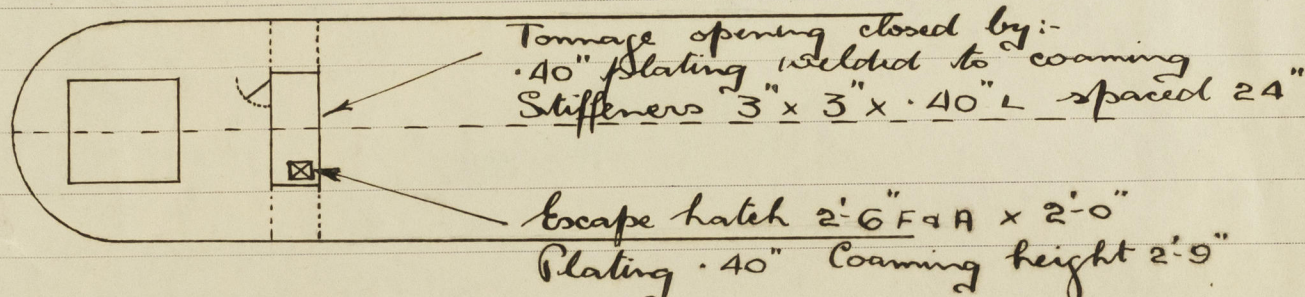 Tonnage opening closed by:-
.40" plating welded to coaming
Stiffeners 3" x 3" x .40" L spaced 24"
Escape hatch 2'-6" F & A x 2'-0"
Plating .40" Coaming height 2'-9"